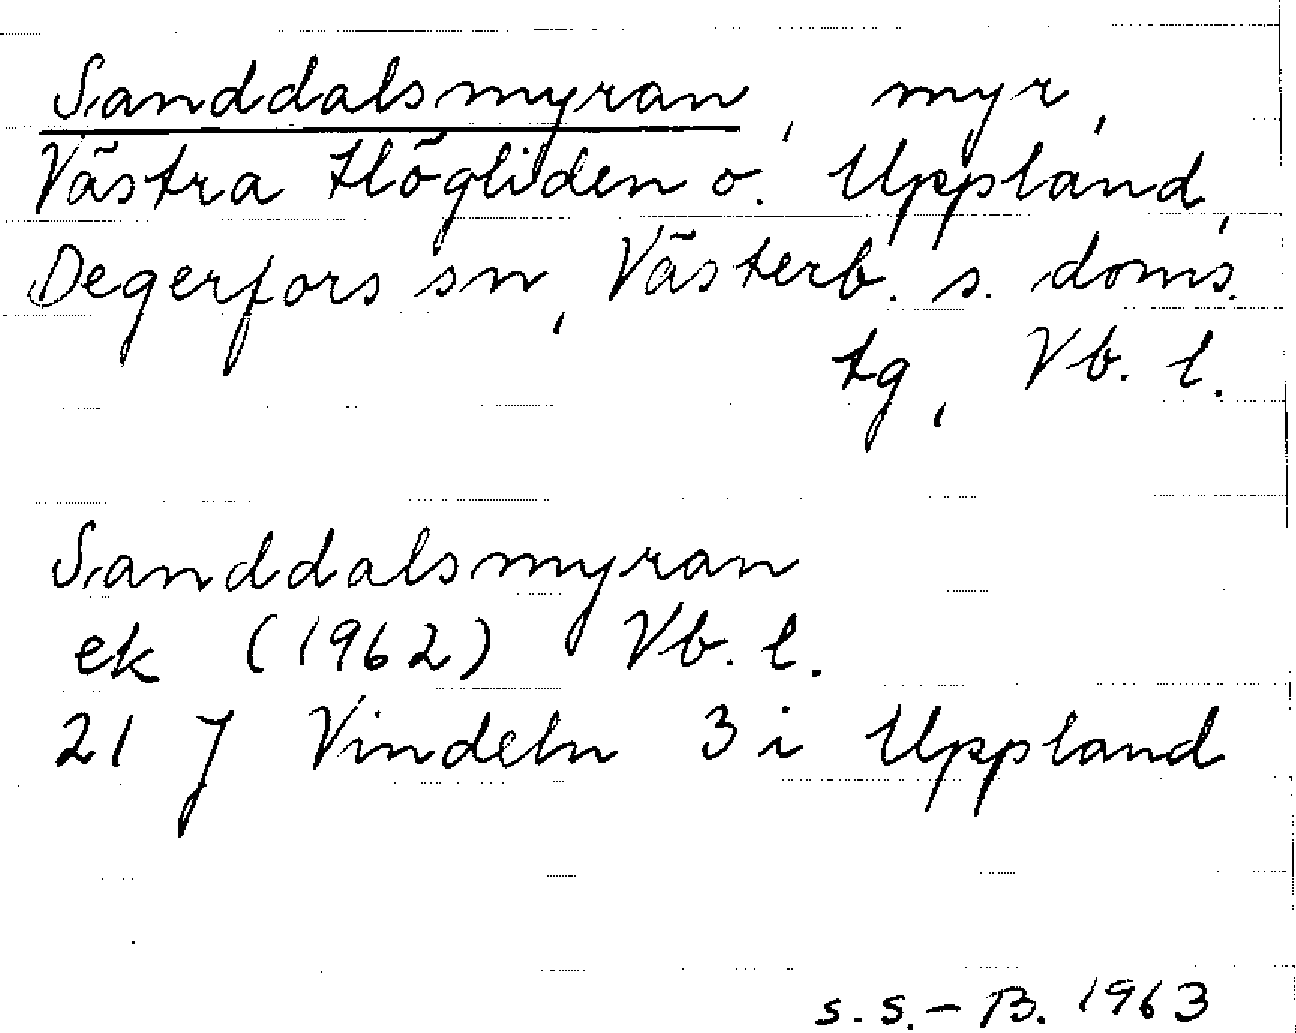 Sanddalsmyran, myr,
Västra Högliden o. Uppland,
Degerfors sn, Västerb. s. doms.
tg, Vb. l.
Sanddalsmyran
ek (1962) Vb. l.
21 J Vindeln 3 i Uppland
S. S. – B. 1963